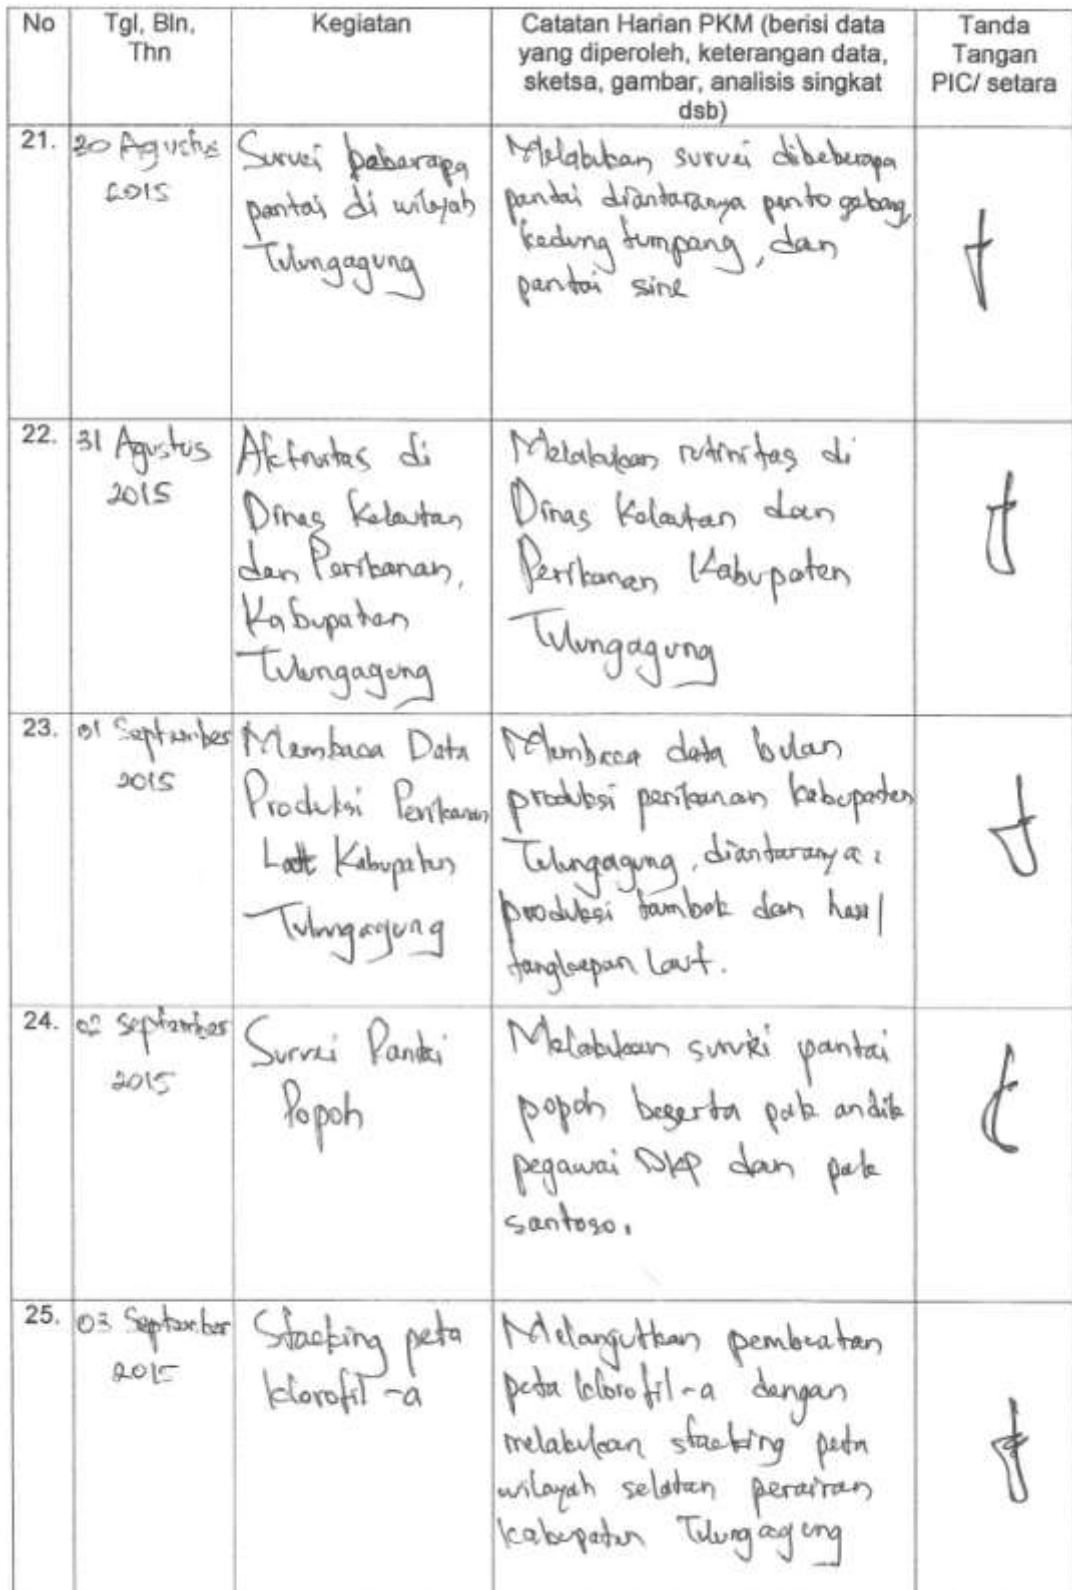 No
Tgl, Bln,
Thn
Kegiatan
Catatan Harian PKM (berisi data
yang diperoleh, keterangan data,
sketsa, gambar, analisis singkat
dsb)
Tanda
Tangan
PIC/ setara
21.
30 Agustus
2015
Survei beberapa
pantai di wilayah
Tulungagung
Melakukan survei dibeberapa
pantai diantaranya panto gebang,
kedung tumpang, dan
pantai sine
22.
31 Agustus
2015
Aktivitas di
Dinas Kelautan
dan Perikanan,
Kabupaten
Tulungagung
Melakukan rutinitas di
Dinas Kelautan dan
Perikanan Kabupaten
Tulungagung
23.
01 September
2015
Membaca Data
Produksi Perikanan
Laut Kabupaten
Tulungagung
Membaca data bulan
produksi perikanan kabupaten
Tulungagung, diantaranya :
produksi tambak dan hasil
tangkapan laut.
24.
02 September
2015
Survei Pantai
Popoh
Melakukan survei pantai
popoh beserta pak andik
pegawai DKP dan pak
santoso.
25.
03 September
2015
Stacking peta
klorofil-a
Melanjutkan pembuatan
peta klorofil-a dengan
melakukan stacking peta
wilayah selatan perairan
kabupaten Tulungagung